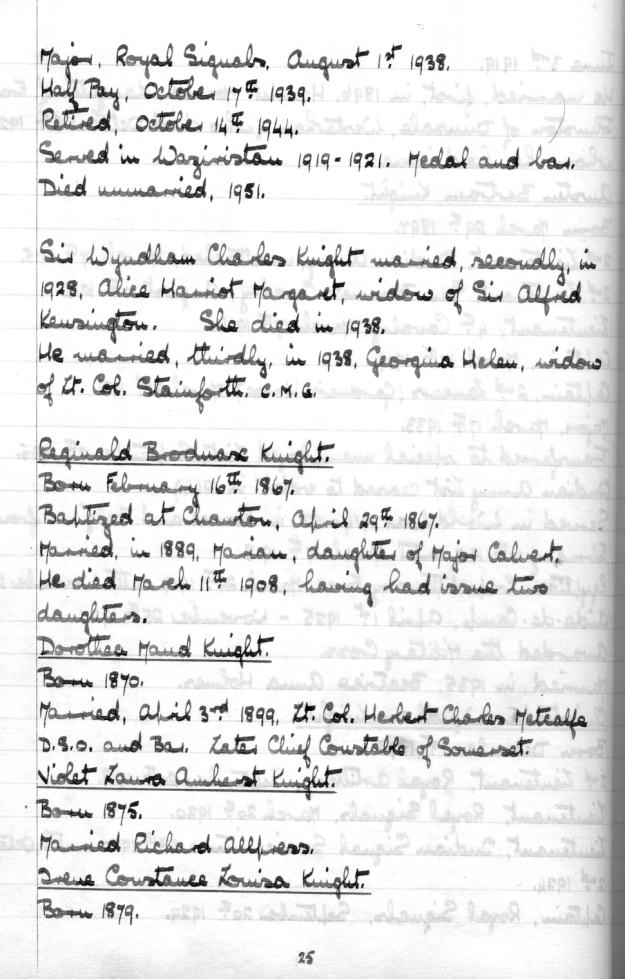 Major, Royal Signals, August 1st 1938.
Half Pay, October 17th 1939.
Retired, October 14th 1944.
Served in Waziristan 1919-1921. Medal and bar.
Died unmarried, 1951.
Sir Wyndham Charles Knight married, secondly, in
1928, Alice Harriot Margaret, widow of Sir Alfred
Kensington. She died in 1938.
He married, thirdly, in 1938, Georgina Helen, widow
of Lt. Col. Stainforth. C.M.G.
Reginald Brodnax Knight.
Born February 16th 1867.
Baptized at Chawton, April 29th 1867.
Married, in 1889, Marian, daughter of Major Calvert.
He died March 11th 1908, having had issue two
daughters.
Dorothea Maud Knight.
Born 1870.
Married, April 3rd 1899, Lt. Col. Herbert Charles Metcalfe
D.S.O. and Bar. Later Chief Constable of Somerset.
Violet Laura Amherst Knight.
Born 1875.
Married Richard Allpress.
Irene Constance Louisa Knight.
Born 1879.
25